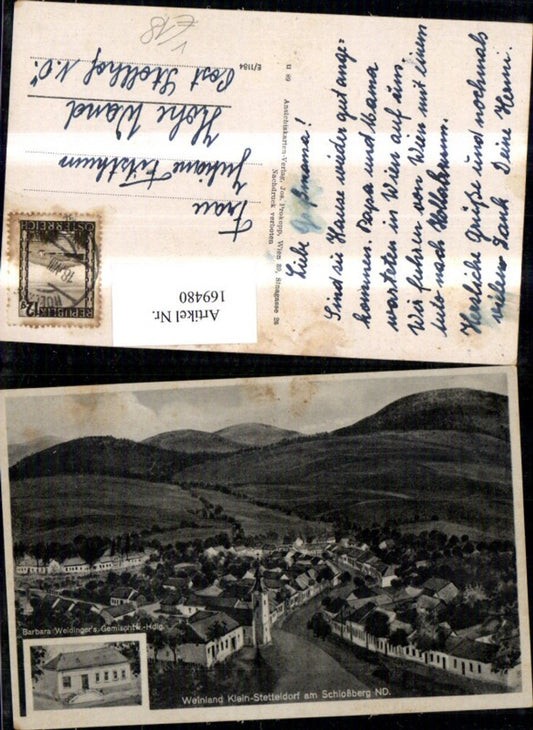 €18
Frau
Juliane
Hohe Wand
Post Stollhof N.Ö.
REPUBLIK
ÖSTERREICH
12g
Artikel Nr.
169480
E/1184
Ansichtskarten-Verlag, Jos. Prokopp, Wien 20, Sinagasse 26
Nachdruck verboten
Liebe Großmama!
Sind zu Hause wieder gut ange-
kommen. Papa und Mama
warteten in Wien auf uns.
Wir fuhren von Wien mit einem
Auto nach Hollabrunn.
Herzliche Grüße und nochmals
vielen Dank Deine Hermi.
Barbara Weidinger's Gemischtw.-Hdlg.
Weinland Klein-Stetteldorf am Schloßberg ND.